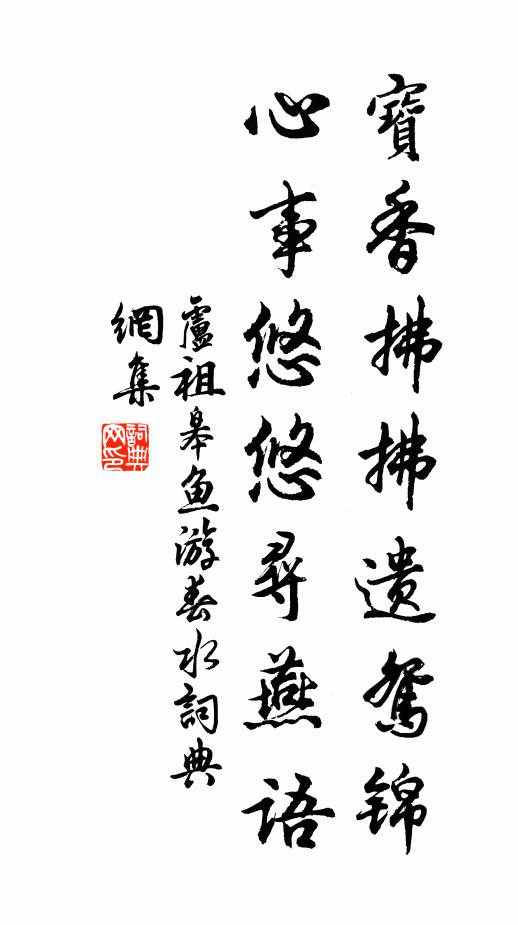 寶香拂拂遺鴛锦
心事悠悠尋燕語
盧祖皋魚游春水詞典
網集
詞典网印